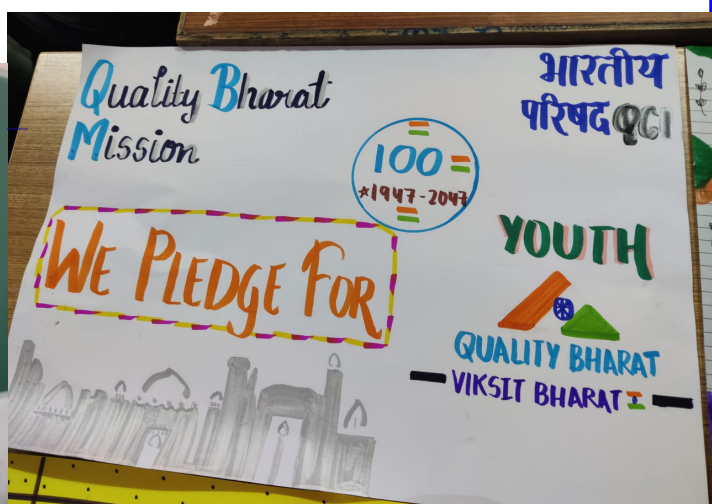 Quality Bharat
Mission
भारतीय
परिषद QCI
100
★1947-2047
WE PLEDGE FOR
YOUTH
QUALITY BHARAT
VIKSIT BHARAT